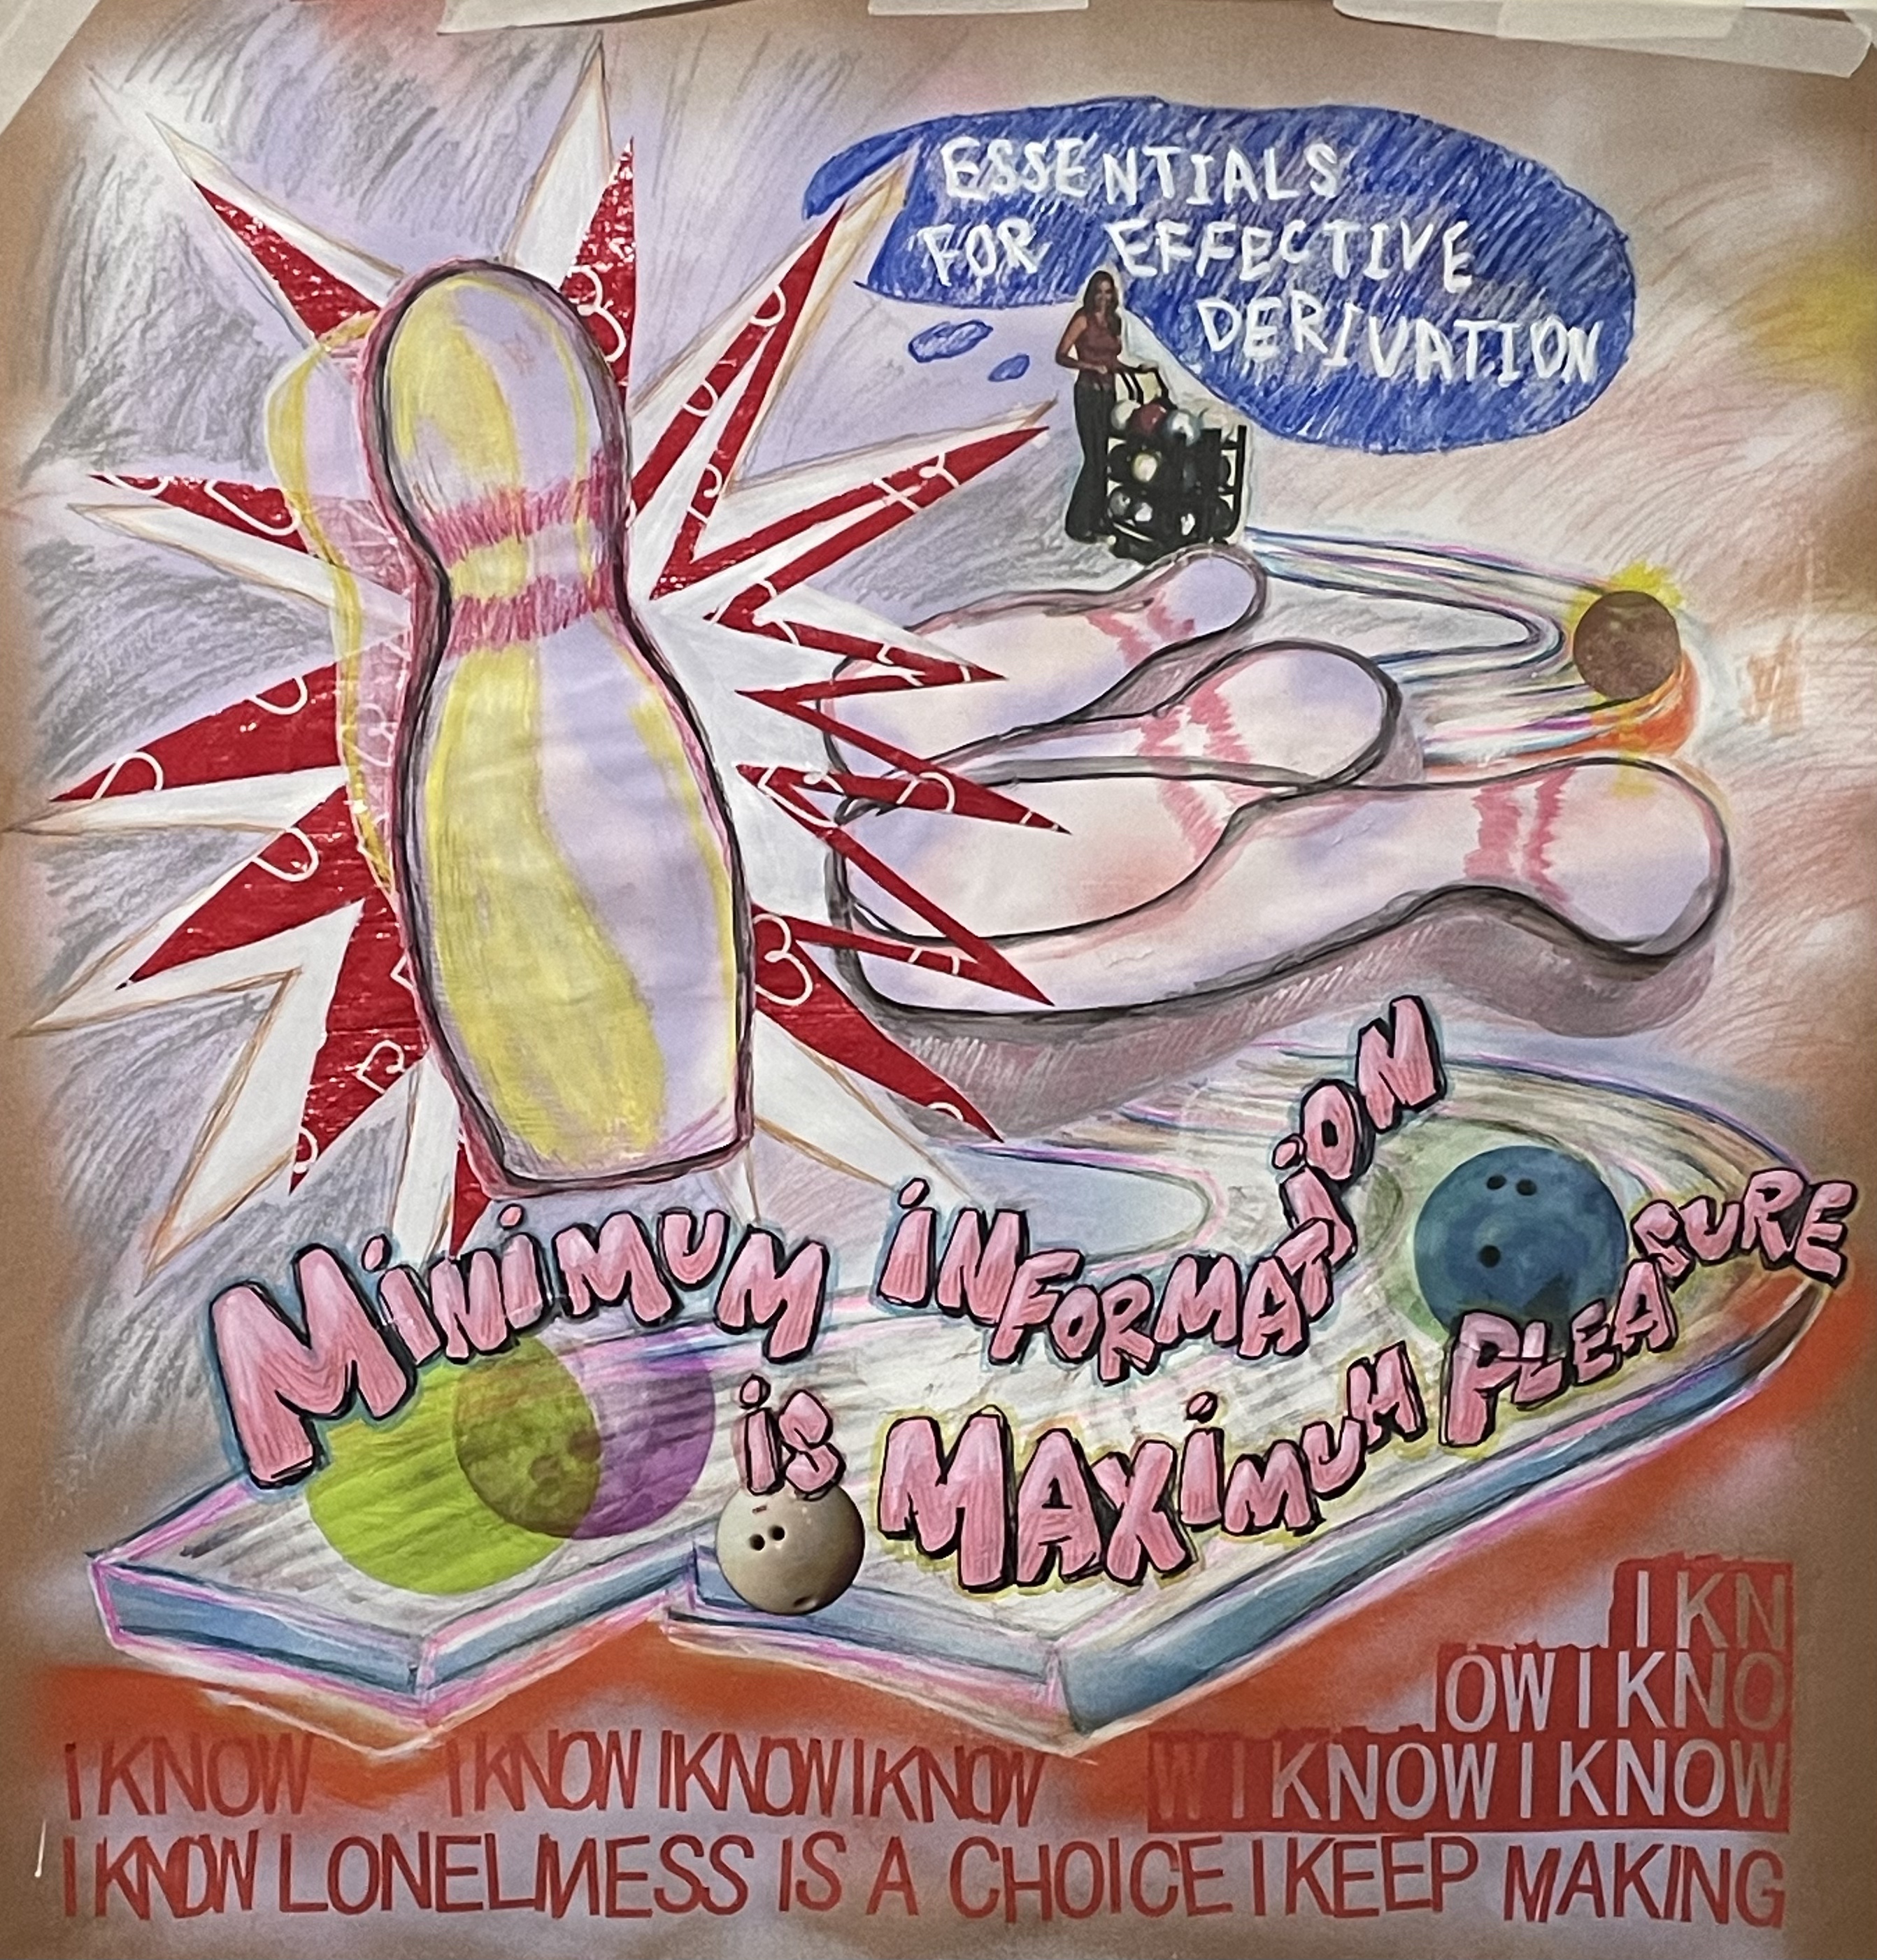 ESSENTIALS
FOR EFFECTIVE
DERIVATION
MiNiMUM iNFORMATiON
iS MAXiMUM PLEASURE
I KN
OW I KNO
I KNOW I KNOW I KNOW I KNOW W I KNOW I KNOW
I KNOW LONELINESS IS A CHOICE I KEEP MAKING